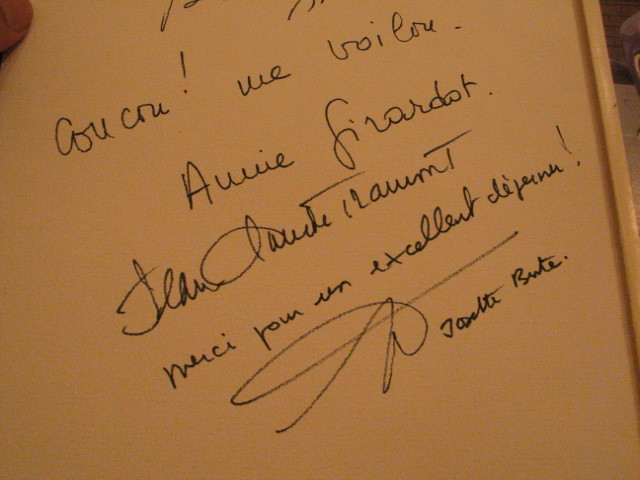 Coucou! me voilou.
Annie Girardot.
Jean Claude
merci pour un excellent déjeuner!
Josette